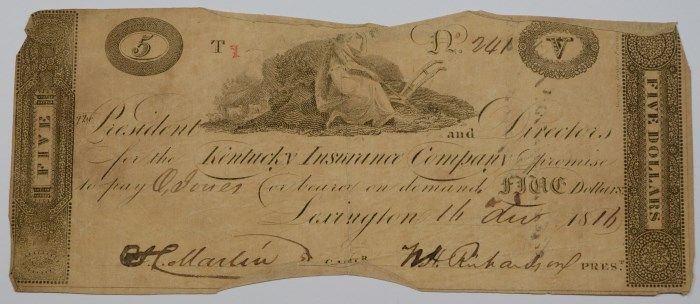 5 T 1 No. 241 V
FIVE
The President and Directors
for the Kentucky Insurance Company promise
to pay O, Jones or bearer on demand FIVE Dollars
Lexington 16 Dec 1816
Martin CASHIER W.H. Richardson PREST.
FIVE DOLLARS